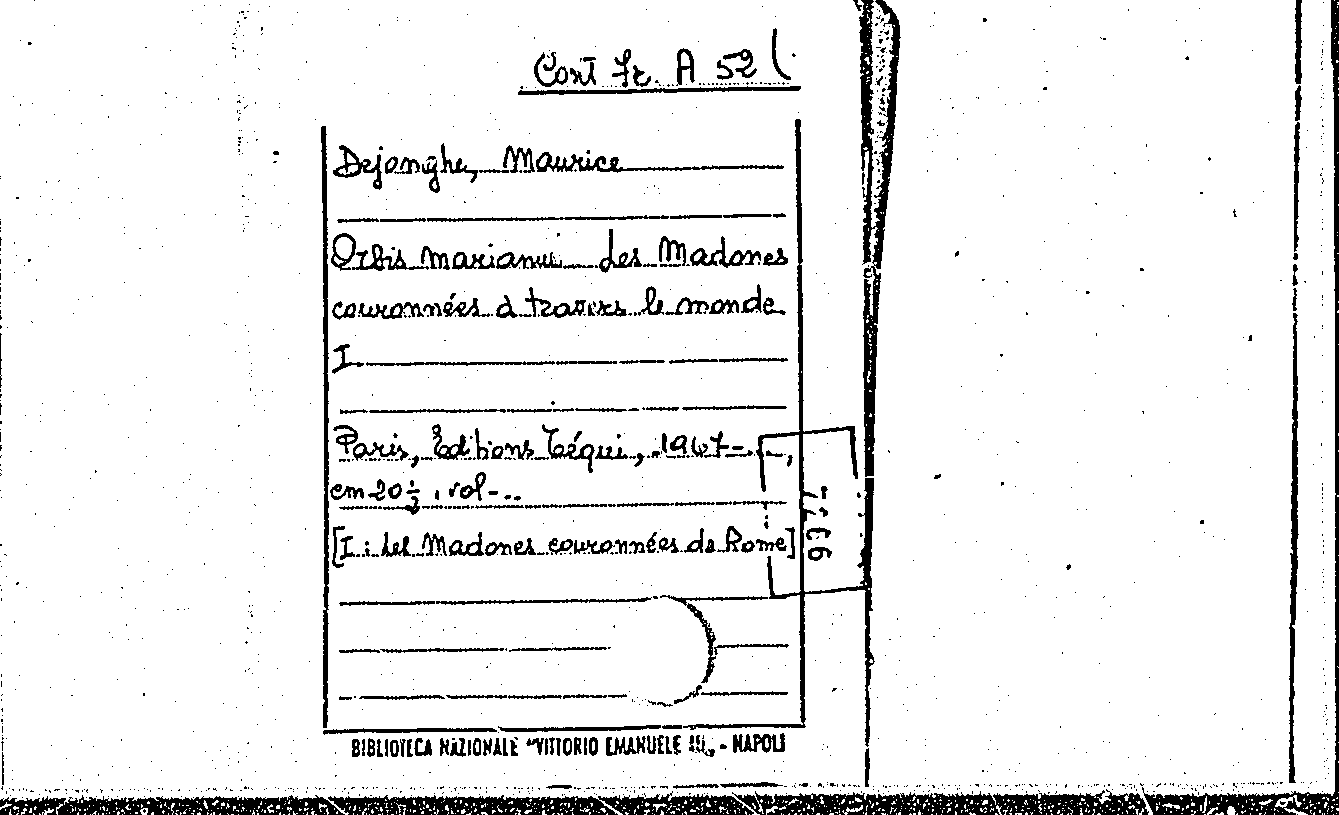 Cont Fr. A 52 (
Dejonghe, Maurice
Orbis marianus Les Madones
couronnées à travers le monde
I
Paris, Editions Téqui, 1967-...,
cm 20 ½, vol-..
[I: Les Madones couronnées de Rome]
BIBLIOTECA NAZIONALE "VITTORIO EMANUELE III„ - NAPOLI